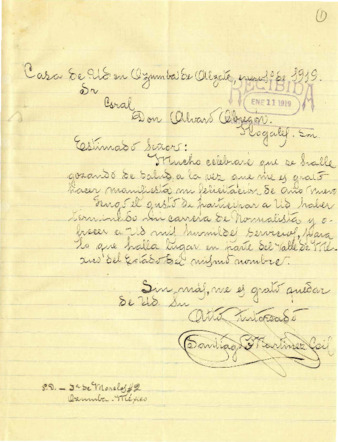 (1)
Casa de Ud en Ozumba de Alzate, enero 1º de 1919.
RECIBIDA
ENE 11 1919
Sr
Gral
Don Alvaro Obregon.
Nogales. Son
Estimado Señor:
Mucho celebraré que se halle
gozando de salud a la vez que me es grato
hacer manifiesta mi felicitacion de año nuevo
Tengo el gusto de participar a Ud haber
terminado mi carrera de Normalista y o-
frecer a Ud mis humildes servicios, para
lo que halla lugar en parte del Valle de Mé-
xico del Estado del mismo nombre.
Sin más, me es grato quedar
de Ud. Su
Atto
Santiago Martinez Gil
P.D. - 3ª de Morelos #2
Ozumba. Méjico